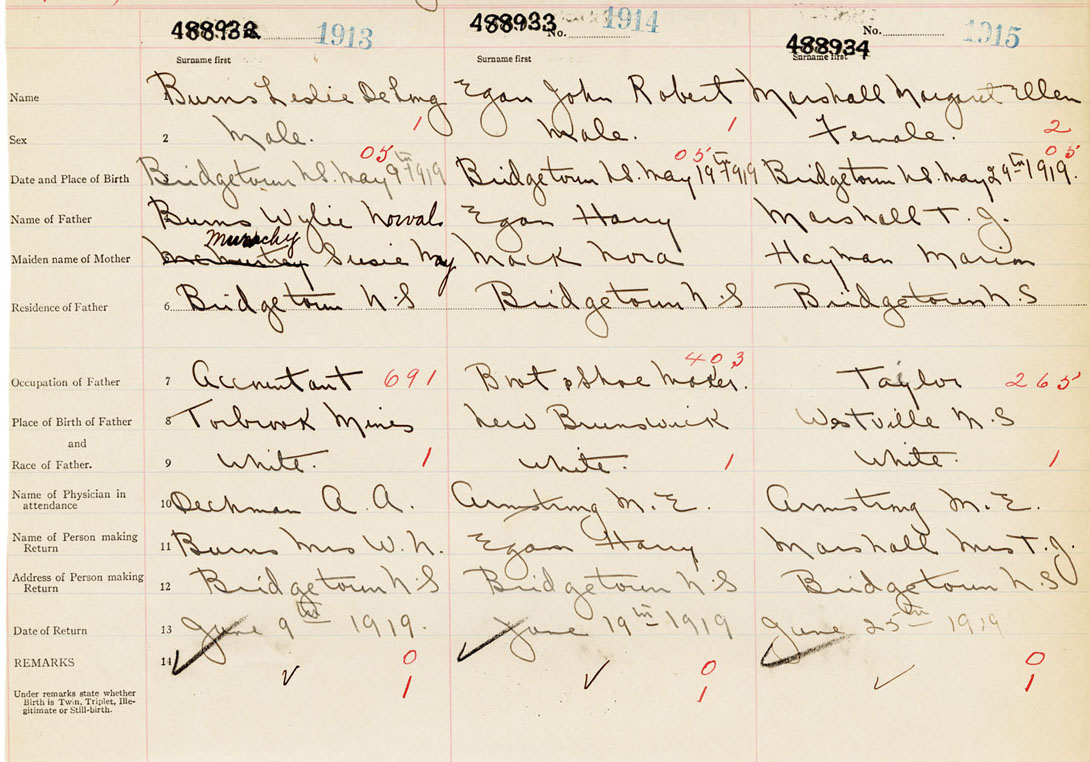 488932 1913 488933 No. 1914 No. 1915
488934
Surname first Surname first Surname first
Name Burns Leslie DeLong Egan John Robert Marshall Margaret Ellen
Sex 2 Male. 1 Male. 1 Female. 2
05 05 05
Date and Place of Birth Bridgetown N.S. May 9th 1919 Bridgetown N.S. May 19th 1919 Bridgetown N.S. May 29th 1919.
Name of Father Burns Wylie Norval Egan Harry Marshall T. J.
Maiden name of Mother Susie May Mack Nora Hayman Marion
Residence of Father 6 Bridgetown N.S Bridgetown N.S Bridgetown N.S
403
Occupation of Father 7 Accountant 691 Boot & Shoe Maker. Taylor 265
Place of Birth of Father 8 Torbrook Mines New Brunswick Westville N.S
and
Race of Father. 9 White. 1 White. 1 White. 1
Name of Physician in
attendance 10 Deckman A. A. Armstrong M. E. Armstrong M. E.
Name of Person making
Return 11 Burns Mrs W. N. Egan Harry Marshall Mrs T. J.
Address of Person making
Return 12 Bridgetown N.S Bridgetown N.S Bridgetown N.S
Date of Return 13 June 9th 1919. June 19th 1919 June 25th 1919
REMARKS 14 0 0 0
1 1 1
Under remarks state whether
Birth is Twin, Triplet, Ille-
gitimate or Still-birth.